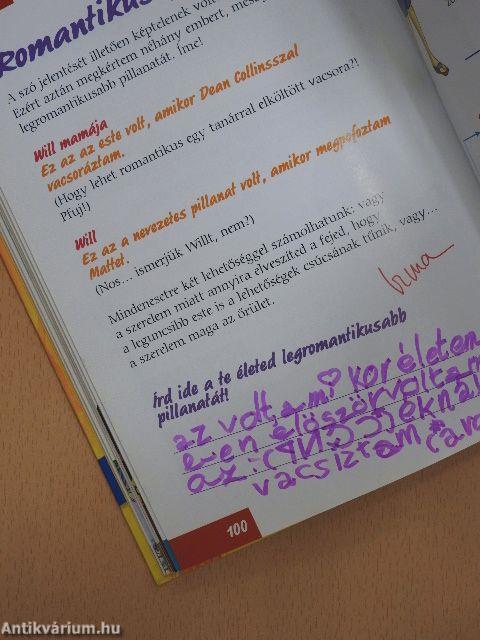 Romantikus
A szó jelentését illetően képtelenek vol
Ezért aztán megkértem néhány embert, mesé
legromantikusabb pillanatát. Íme!
Will mamája
Ez az az este volt, amikor Dean Collinsszal
vacsoráztam.
(Hogy lehet romantikus egy tanárral elköltött vacsora?!
Pfuj!)
Will
Ez az a nevezetes pillanat volt, amikor megpofoztam
Mattet.
(Nos... ismerjük Willt, nem?)
Mindenesetre két lehetőséggel számolhatunk: vagy
a szerelem miatt annyira elveszíted a fejed, hogy
a leguncsibb este is a lehetőségek csúcsának tűnik, vagy...
a szerelem maga az őrület.
Irma
Írd ide a te életed legromantikusabb
pillanatát!
az volt, ami kor életem
e-en előszörvoltam
az
éknál
vacsiztam
100
Antikvárium.hu